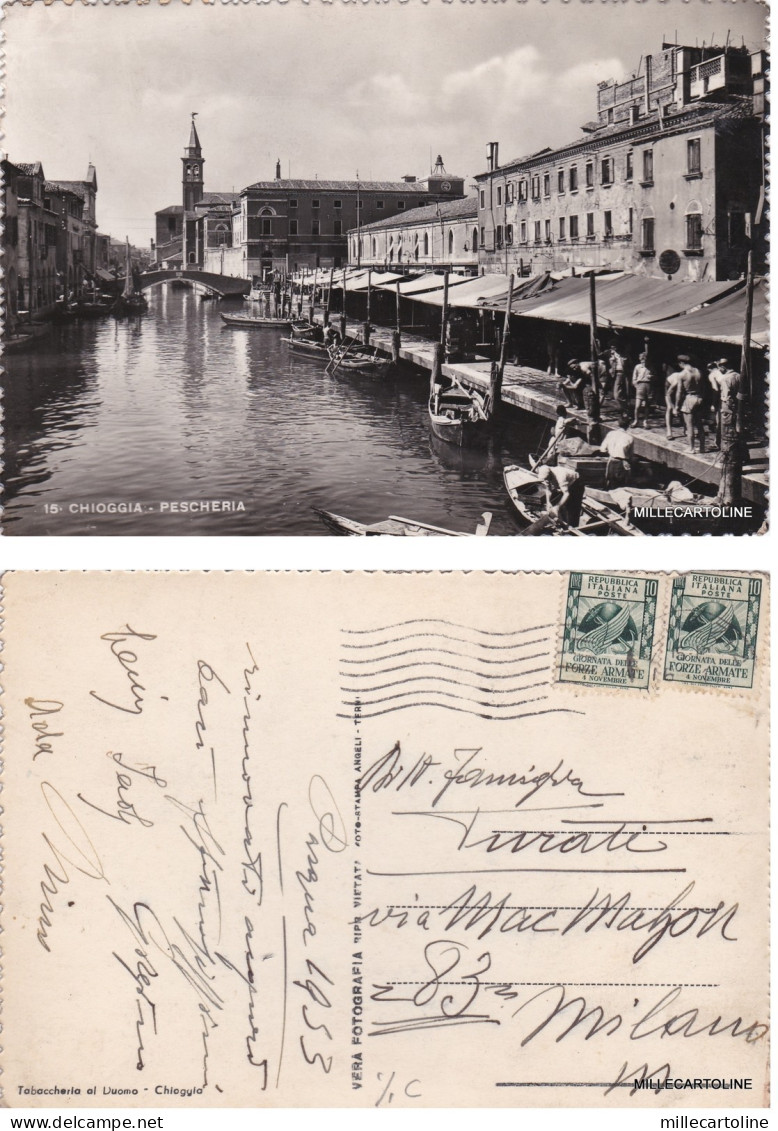 15 - CHIOGGIA - PESCHERIA
MILLECARTOLINE
REPUBBLICA 10
ITALIANA
POSTE
GIORNATA DELLE
FORZE ARMATE
4 NOVEMBRE
REPUBBLICA 10
ITALIANA
POSTE
GIORNATA DELLE
FORZE ARMATE
4 NOVEMBRE
Pasqua 1953
rinnovati auguri
baci
Gaetano
Ada
Nino
VERA FOTOGRAFIA RIPR. VIETATA FOTO-STAMPA ANGELI - TERNI
Famiglia
Turati
via Mac Mahon
83
Milano
Tabaccheria al Duomo - Chioggia
MILLECARTOLINE
millecartoline
millecartoline